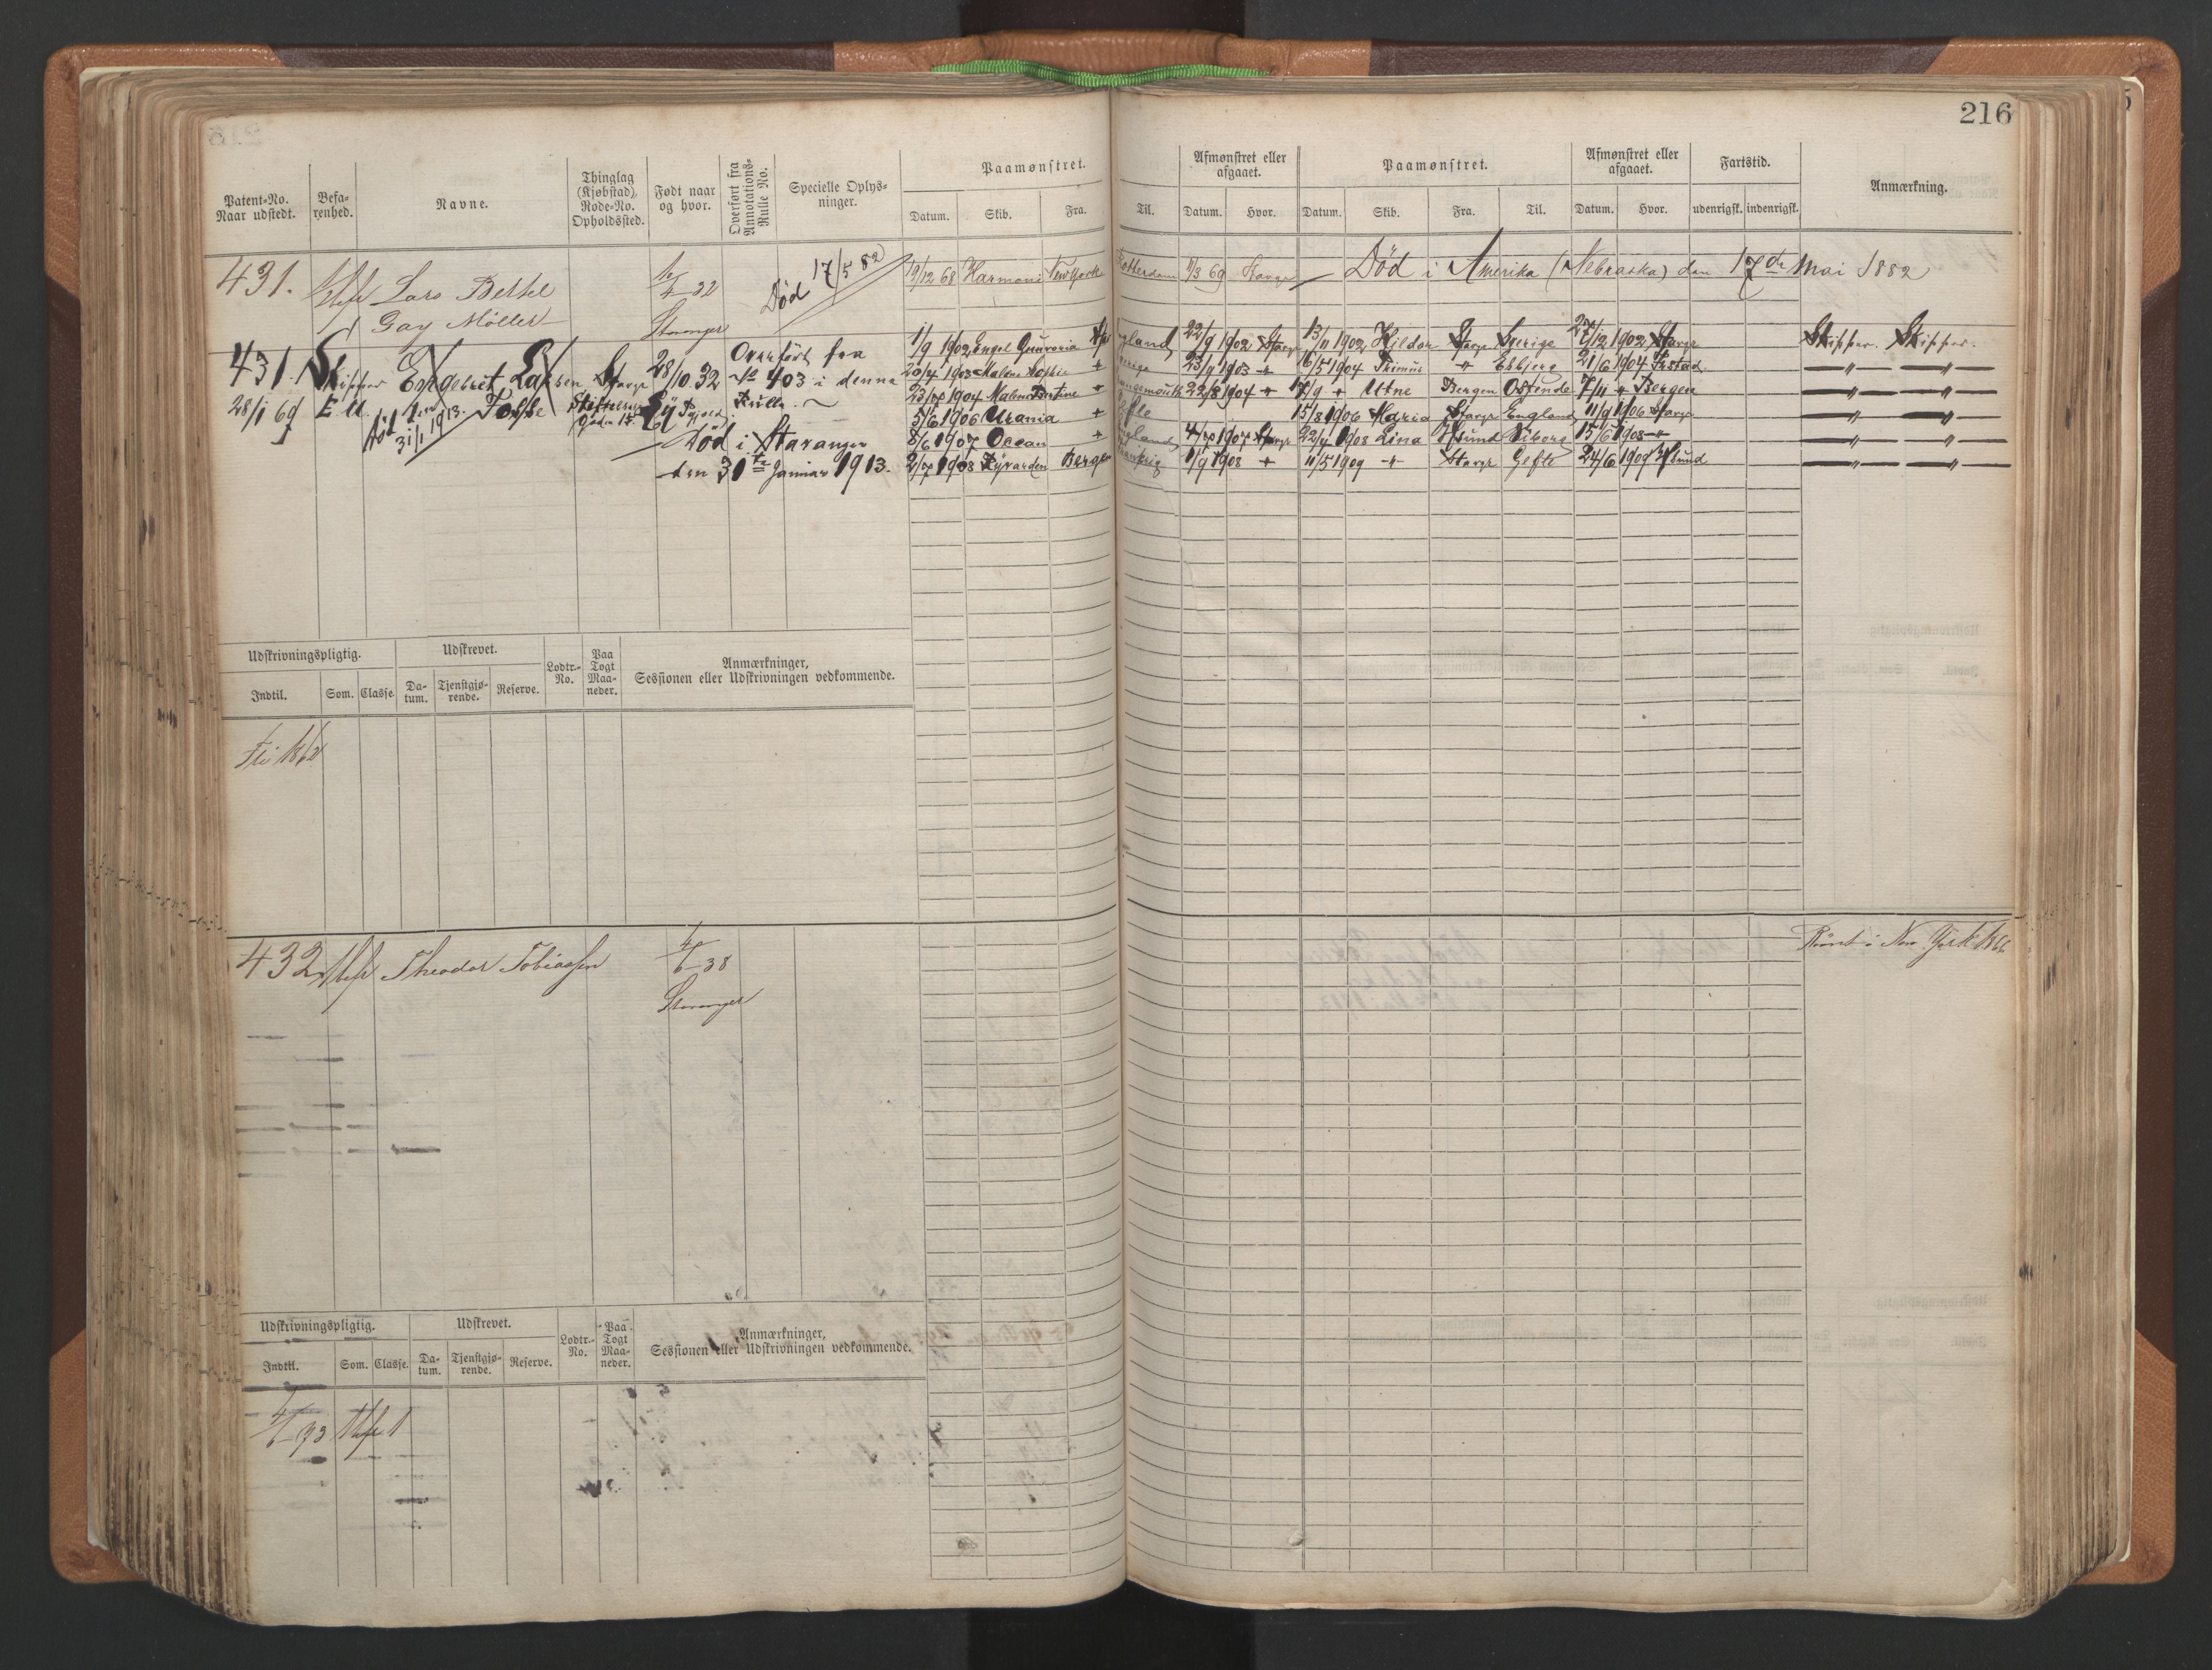 216
Patent-No. Naar udstedt.
Befa-renhed.
Navne.
Thinglag (Kjøbstad), Rode-No. Opholdssted.
Født naar og hvor.
Overført fra Annotations-Rulle No.
Specielle Oplys-ninger.
Paamønstret.
Datum. Skib. Fra. Til.
Afmønstret eller afgaaet.
Datum. Hvor.
Paamønstret.
Datum. Skib. Fra. Til.
Afmønstret eller afgaaet.
Datum. Hvor.
Fartstid.
udenrigsk. indenrigsk.
Anmærkning.
431. Lars Bertel 32 Død 17/5 82 19/12 68 Harmoni New York Rotterdam 1/3 69 Stavgr Død i Amerika (Nebraska) den 17de Mai 1882
Gay Möller Stavanger
1/9 1902 Engel England, 22/9 1902 Stavgr 13/11 1902 Hildor Stavgr Sverige 27/12 1902 Stavgr Skipper. Skipper.
431. Skipper Engebret Larsen Stavgr 28/10 32 Overført fra 20/4 1903 Malene Sophie " Sverige 23/9 1903 " 6/5 1904 Primus " Esbjerg 21/6 1904 Frstad — " — — " —
28/1 69 E.M. Tosse No 403 i denne Rulle. 23/7 1904 Malene Bertine " 22/8 1904 " 17/9 " Utne Bergen Ostende 7/11 " Bergen — " — — " —
Død den 31/1 1913. 5/6 1906 Urania " Gefle 15/8 1906 Maria Stavgr England 11/9 1906 Stavgr — " — — " —
Død i Stavanger 8/6 1907 Ocean " England, 4/10 1907 Stavgr 22/4 1908 Lina Hsund Viborg 15/6 1908 " — " — — " —
den 31te Januar 1913. 2/7 1908 Ryvarden Bergen 1/9 1908 " 11/5 1909 " Stavgr Gefle 24/6 1909 Hsund — " — — " —
Udskrivningspligtig.
Indtil. Som. Classe.
Udskrevet.
Da-tum. Tjenstgjø-rende. Reserve.
Lodtr.-No.
Paa Togt Maa-neder.
Anmærkninger, Sessionen eller Udskrivningen vedkommende.
Fri 1862
432 Theodor Tobiassen 4/6 38 Rømt i New York 1866
Stavanger
Udskrivningspligtig.
Indtil. Som. Classe.
Udskrevet.
Da-tum. Tjenstgjø-rende. Reserve.
Lodtr.-No.
Paa Togt Maa-neder.
Anmærkninger, Sessionen eller Udskrivningen vedkommende.
4/6 93 1